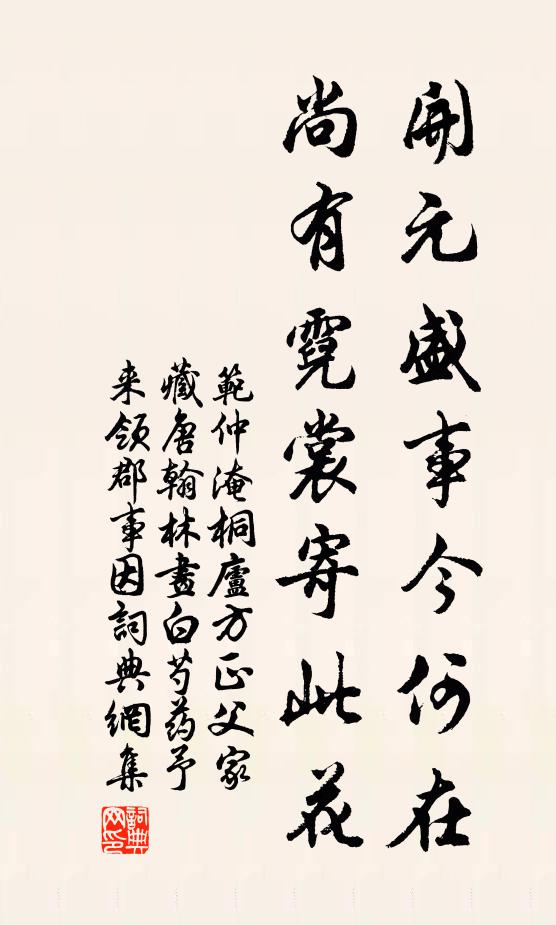 開元盛事今何在
尚有霓裳寄此花
範仲淹桐廬方正父家
藏唐翰林畫白芍药予
来領郡事因詞典網集
詞典
网印